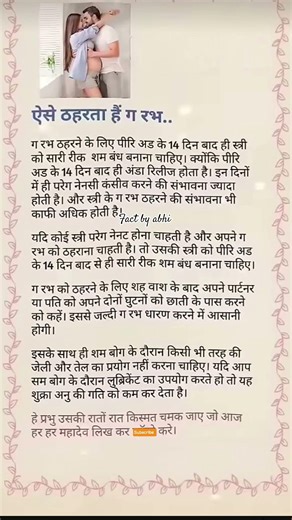 ऐसे ठहरता हैं ग रभ..
ग रभ ठहरने के लिए पीरि अड के 14 दिन बाद ही स्त्री
को सारी रीक शम बंध बनाना चाहिए। क्योंकि पीरि
अड के 14 दिन बाद ही अंडा रिलीज होता है। इन दिनों
में ही परेग नेनसी कंसीव करने की संभावना ज्यादा
होती है। और स्त्री के ग रभ ठहरने की संभावना भी
काफी अधिक होती है।
Fact by abhi
यदि कोई स्त्री परेग नेनट होना चाहती है और अपने ग
रभ को ठहराना चाहती है। तो उसकी स्त्री को पीरि अड
के 14 दिन बाद से ही सारी रीक शम बंध बनाना चाहिए।
ग रभ को ठहरने के लिए शह वाश के बाद अपने पार्टनर
या पति को अपने दोनों घुटनों को छाती के पास करने
को कहें। इससे जल्दी ग रभ धारण करने में आसानी
होगी।
इसके साथ ही शम बोग के दौरान किसी भी तरह की
जेली और तेल का प्रयोग नहीं करना चाहिए। यदि आप
सम बोग के दौरान लुब्रिकेंट का उपयोग करते हो तो यह
शुक्रा अनु की गति को कम कर देता है।
हे प्रभु उसकी रातों रात किस्मत चमक जाए जो आज
हर हर महादेव लिख कर Subscribe करे।